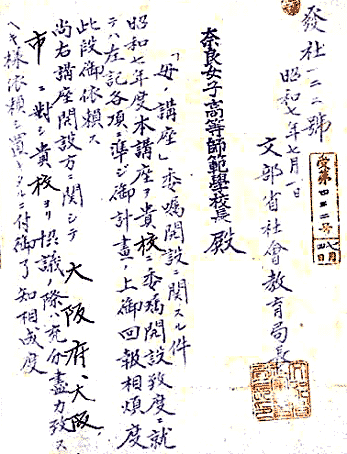 發社一二二號
昭和七年七月一日
文部省社會教育局長
奈良女子高等師範學校長 殿
「母ノ講座」委囑開設ニ關スル件
昭和七年度本講座ヲ貴校ニ委囑開設致度ニ就
テハ左記各項ニ準ジ御計畫ノ上御回報相煩度
此段御依頼ス
尚右講座開設方ニ關シテ大阪府、大阪
市ニ對シ貴校ヨリ協議ノ際ハ充分盡力致ス
ベキ樣依頼シ置キタルニ付御了知相成度
受第四三二号